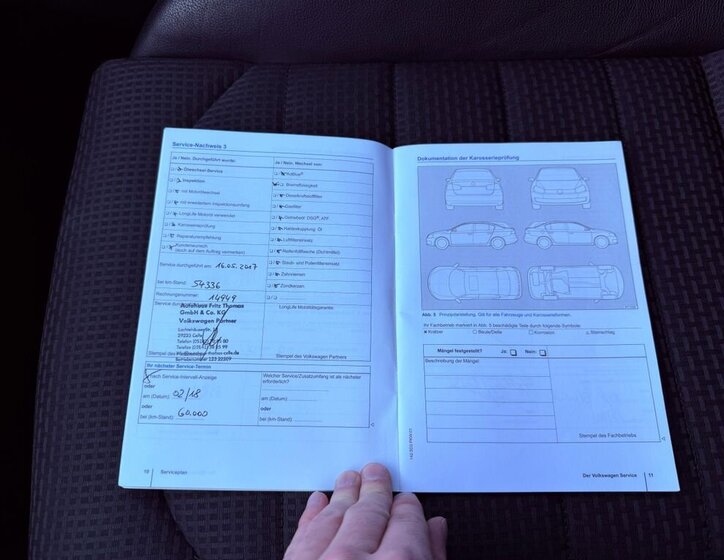 Service-Nachweis 3
Ja / Nein, Durchgeführt wurde:
Ölwechsel-Service
Inspektion
mit Motorölwechsel
mit erweitertem Inspektionsumfang
LongLife Motoröl verwendet
Karosserieprüfung
Reparaturempfehlung
Kundenwunsch
(auch auf dem Auftrag vermerken)
Service durchgeführt am: 16.05.2017
bei km-Stand: 54336
Rechnungsnummer: 14949
Service
Autohaus Fritz Thomas
GmbH & Co. KG
Volkswagen Partner
29223 Celle
Stempel des
Ja / Nein, Wechsel von:
AdBlue®
Bremsflüssigkeit
Dieselkraftstofffilter
Gasfilter
Getriebeöl DSG®, ATF
Haldexkupplung Öl
Luftfiltereinsatz
Reifenfüllflasche (Dichtmittel)
Staub- und Pollenfiltereinsatz
Zahnriemen
Zündkerzen
LongLife Mobilitätsgarantie
Stempel des Volkswagen Partners
Ihr nächster Service-Termin
nach Service-Intervall-Anzeige
oder
am (Datum): 02/18
oder
bei (km-Stand): 60.000
Welcher Service/Zusatzumfang ist als nächster
erforderlich?
am (Datum):
oder
bei (km-Stand):
10 Serviceplan
Dokumentation der Karosserieprüfung
Abb. 5 Prinzipdarstellung. Gilt für alle Fahrzeuge und Karosserieformen.
Ihr Fachbetrieb markiert in Abb. 5 beschädigte Teile durch folgende Symbole:
Kratzer Beule/Delle Korrosion Steinschlag
Mängel festgestellt? Ja: Nein:
Beschreibung der Mängel:
Stempel des Fachbetriebs
Der Volkswagen Service 11